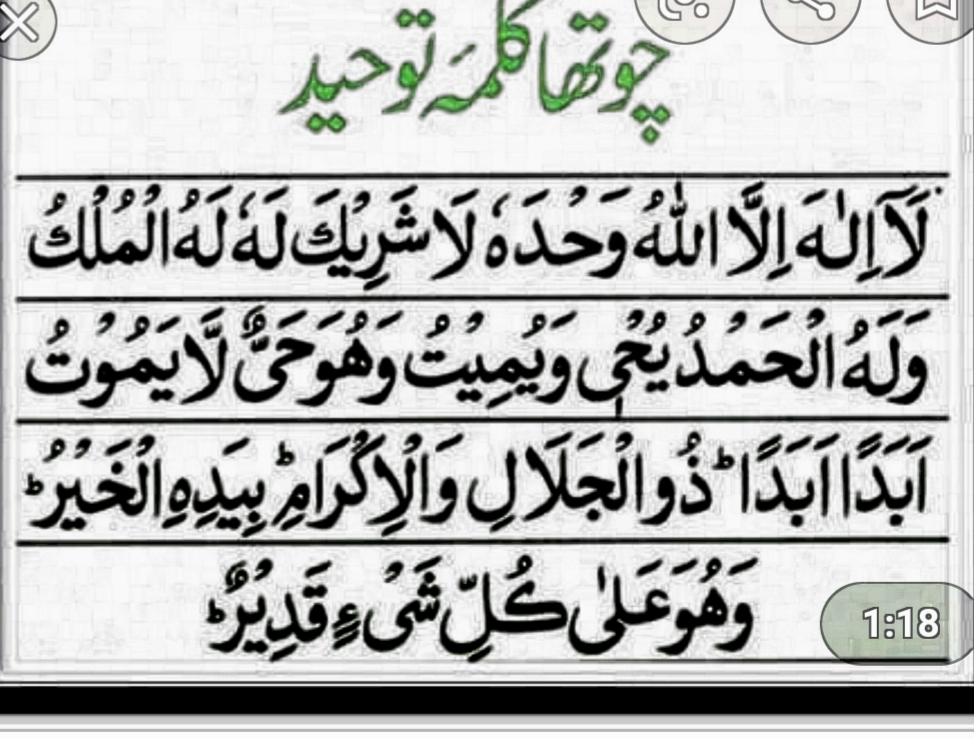 چوتھا کلمۂ توحید
لَآ اِلٰهَ اِلَّا اللّٰهُ وَحْدَهٗ لَا شَرِيْكَ لَهٗ لَهُ الْمُلْكُ
وَلَهُ الْحَمْدُ يُحْيٖ وَيُمِيْتُ وَهُوَ حَیٌّ لَّا يَمُوْتُ
اَبَدًا اَبَدًا ؕ ذُو الْجَلَالِ وَالْاِكْرَامِ ؕ بِيَدِهِ الْخَيْرُ ؕ
وَهُوَ عَلٰى كُلِّ شَیْءٍ قَدِيْرٌ ؕ
1:18